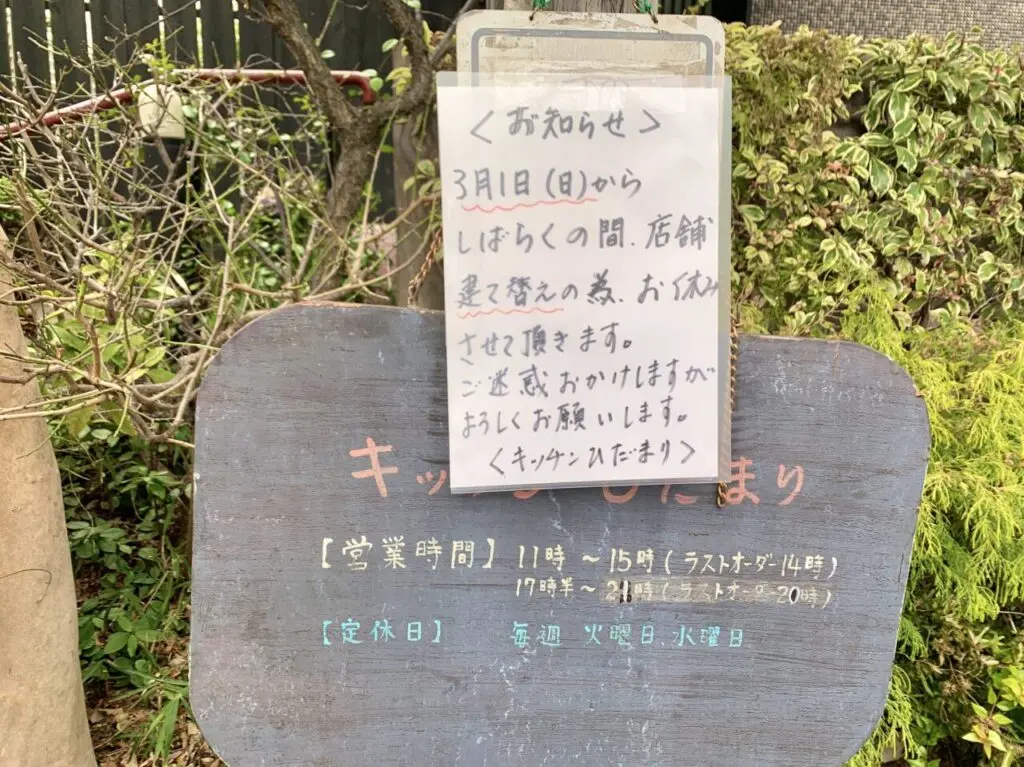 ＜お知らせ＞
3月1日(日)から
しばらくの間、店舗
建て替えの為、お休み
させて頂きます。
ご迷惑おかけしますが
よろしくお願いします。
＜キッチンひだまり＞
キッチン ひだまり
【営業時間】 11時～15時(ラストオーダー14時)
17時半～21時(ラストオーダー20時)
【定休日】 毎週 火曜日、水曜日